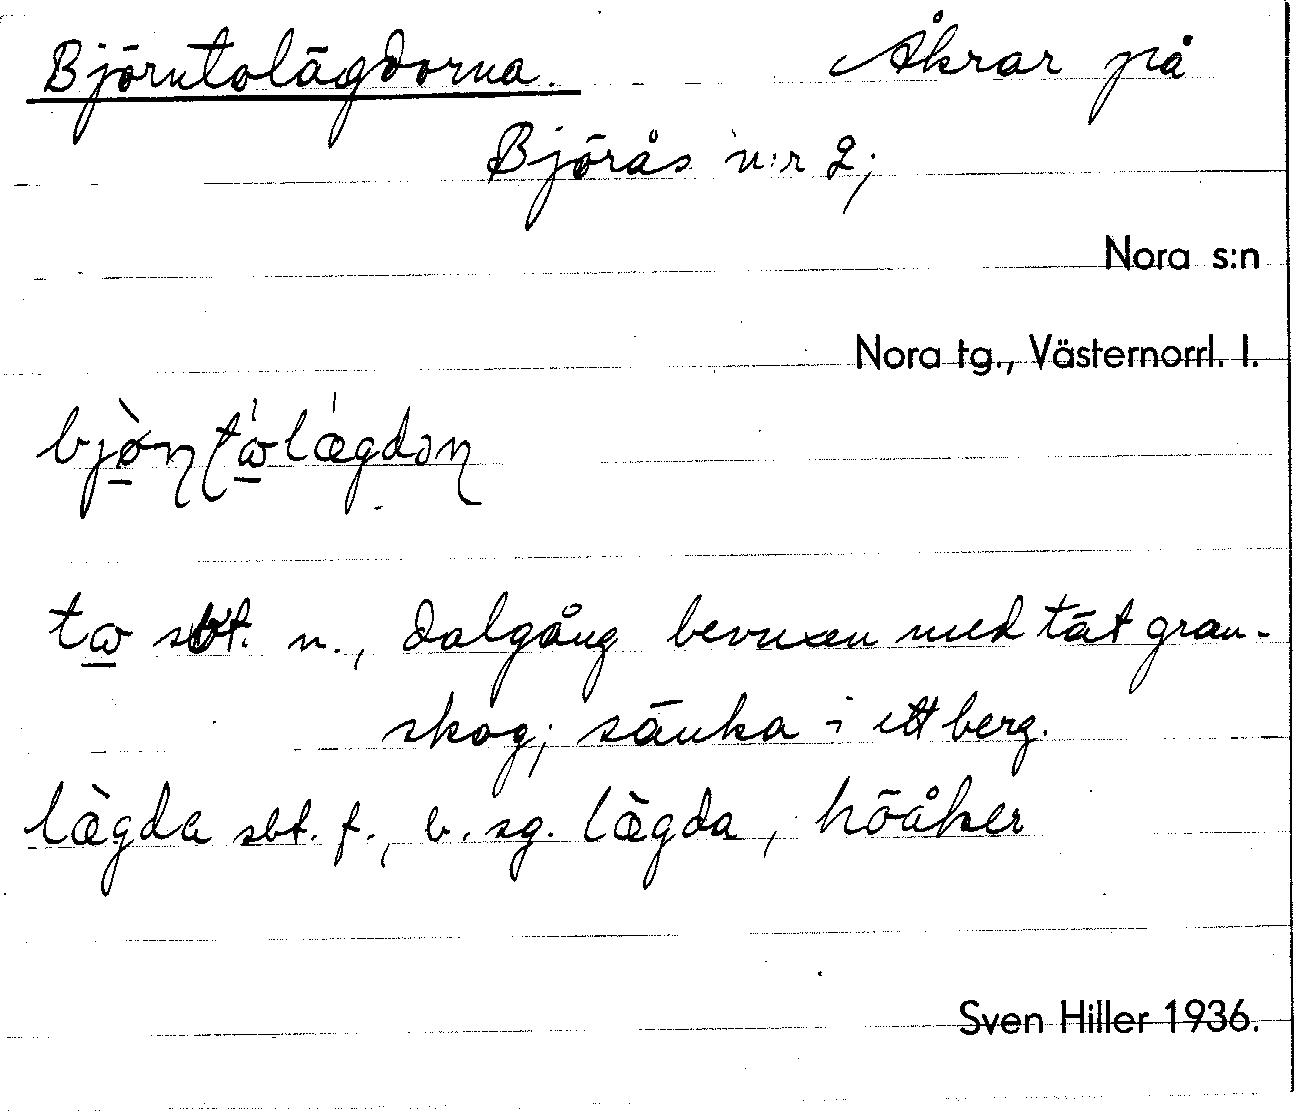 Björntolägdorna. Åkrar på
Björås n:r 2;
Nora s:n
Nora tg., Västernorrl. l.
tω sbt. n., dalgång bevuxen med tät gran-
skog; sänka i ett berg.
lægda sbt. f., b. sg. lægda, höåker
Sven Hiller 1936.